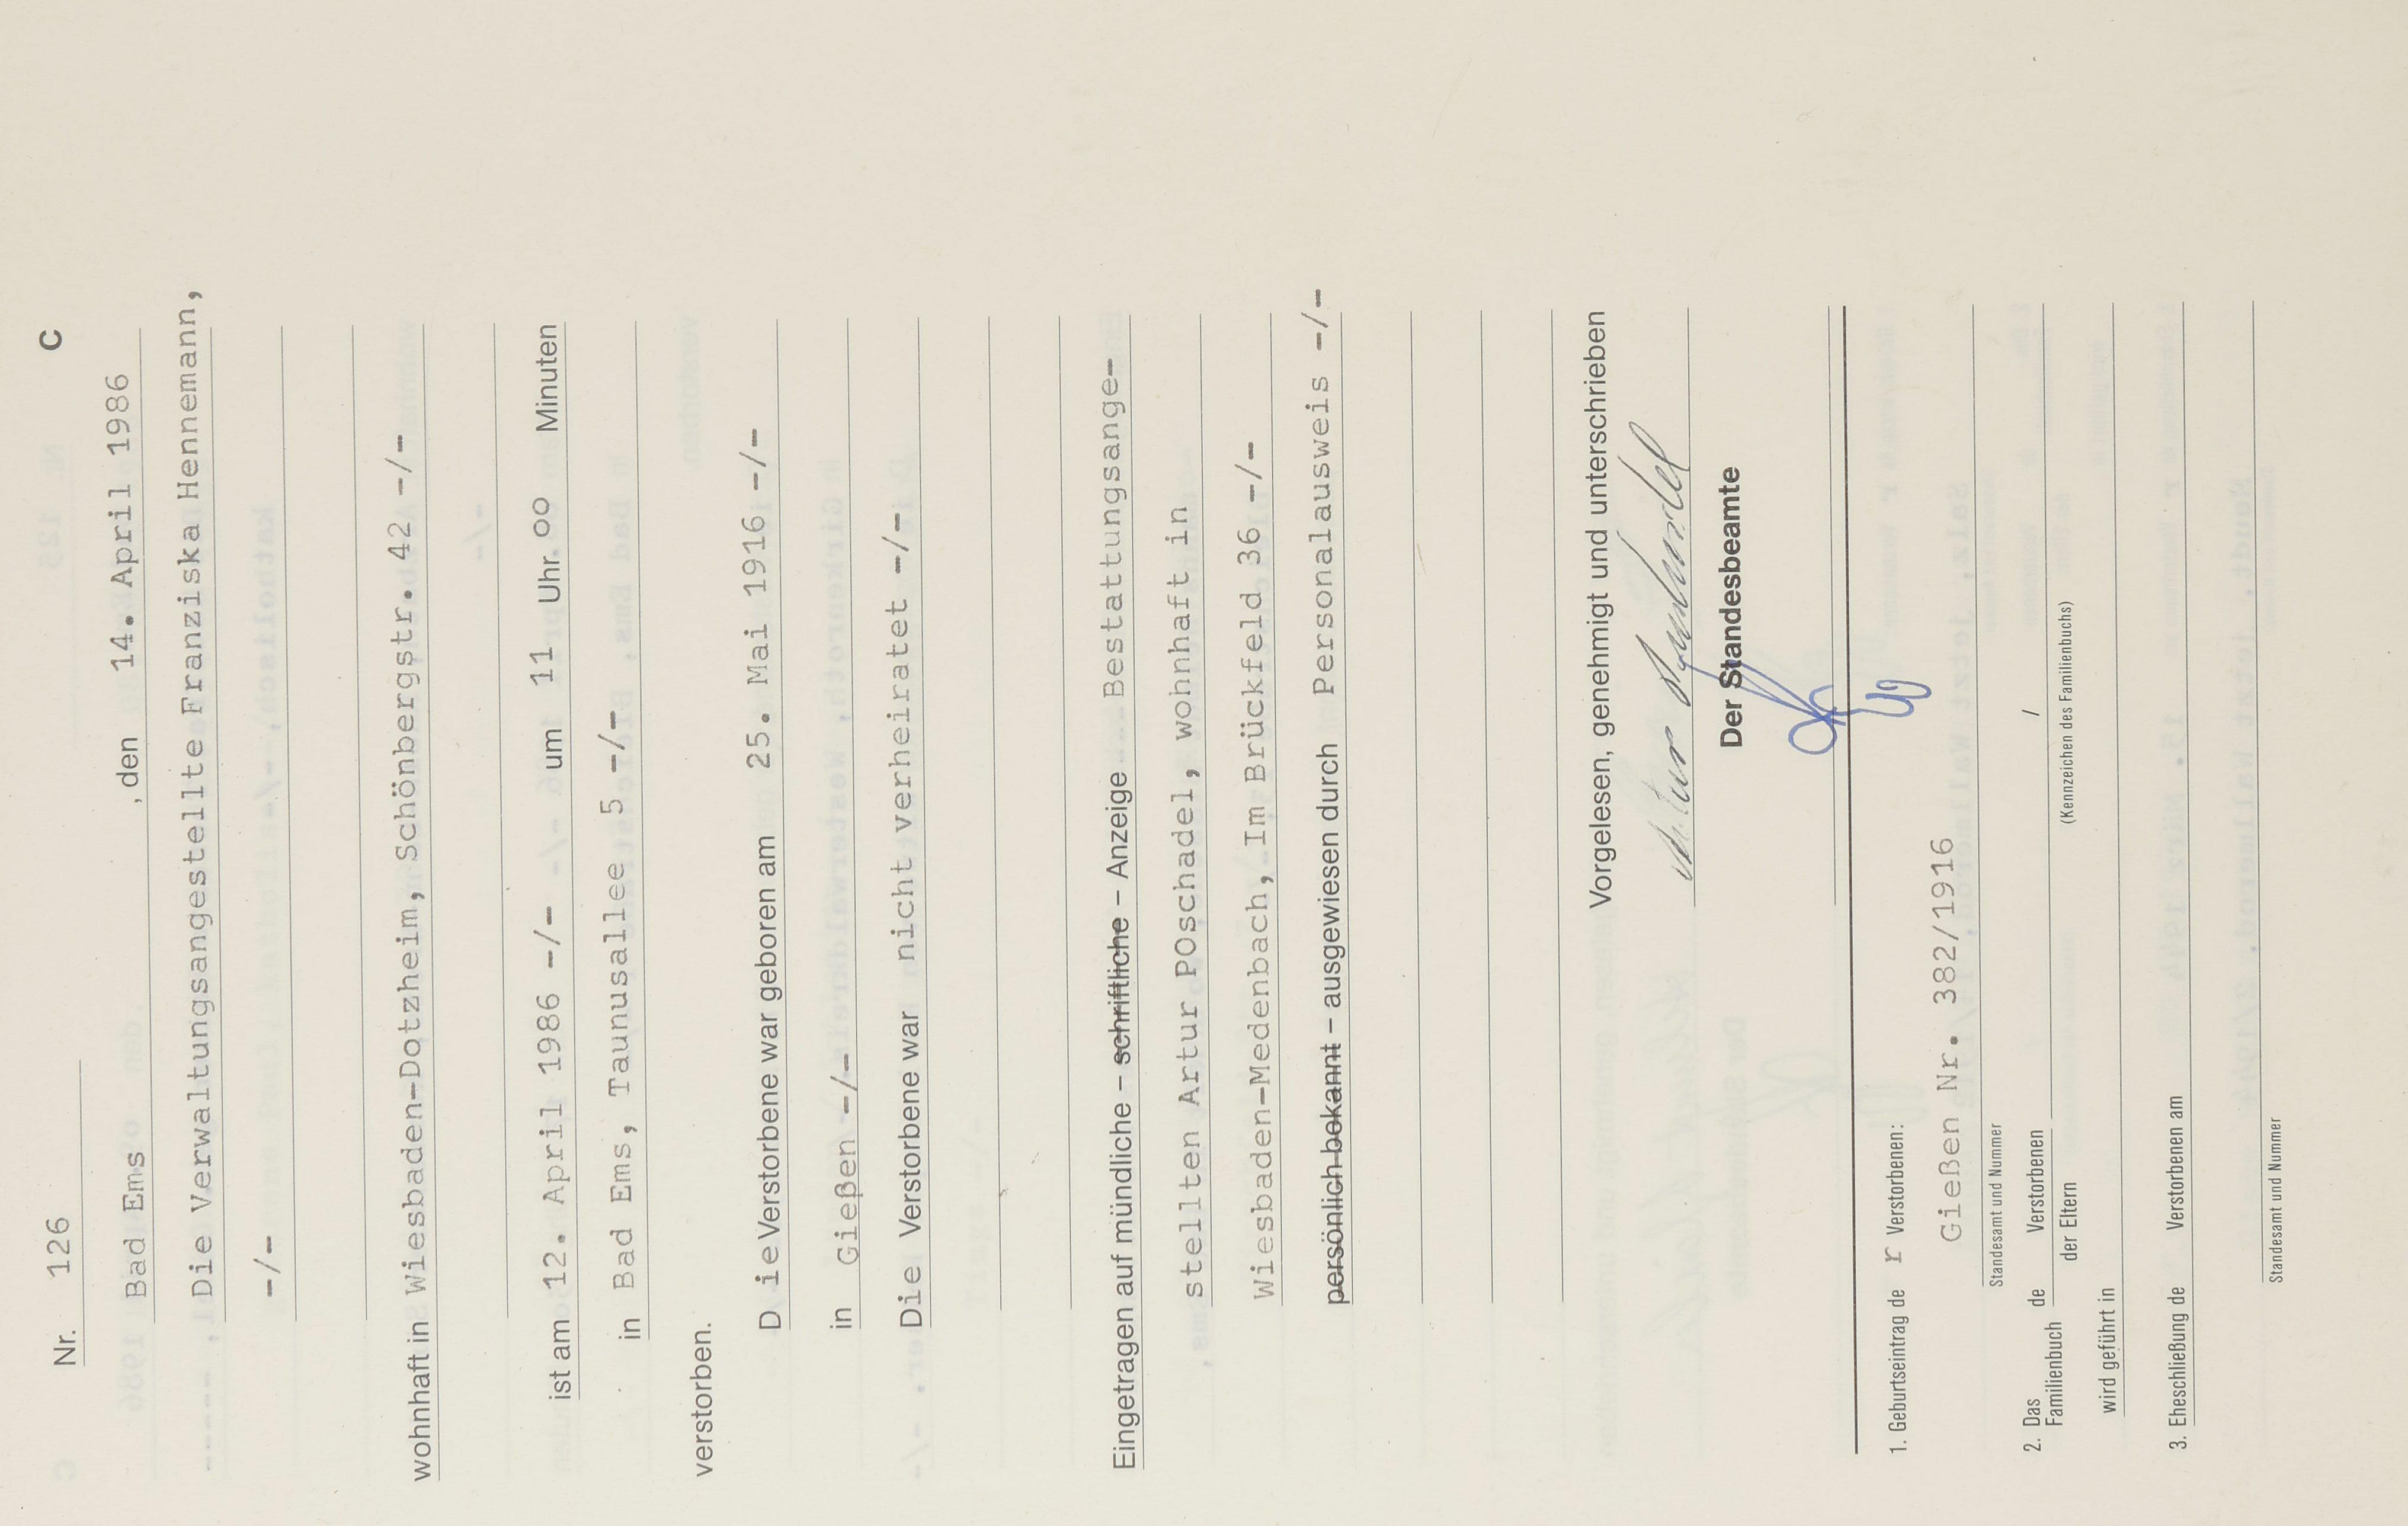 Nr. 126 C
Bad Ems , den 14. April 1986
Die Verwaltungsangestellte Franziska Hennemann,
-/-
wohnhaft in Wiesbaden-Dotzheim, Schönbergstr. 42 -/-
ist am 12. April 1986 -/- um 11 Uhr 00 Minuten
in Bad Ems, Taunusallee 5 -/-
verstorben.
Die Verstorbene war geboren am 25. Mai 1916 -/-
in Gießen -/-
Die Verstorbene war nicht verheiratet -/-
Eingetragen auf mündliche – schriftliche – Anzeige Bestattungsange-
stellten Artur POschadel, wohnhaft in
Wiesbaden-Medenbach, Im Brückfeld 36 -/-
persönlich bekannt – ausgewiesen durch Personalausweis -/-
Vorgelesen, genehmigt und unterschrieben
Artur Poschadel
Der Standesbeamte
1. Geburtseintrag de r Verstorbenen:
Gießen Nr. 382/1916
Standesamt und Nummer
2. Das Familienbuch de Verstorbenen /
der Eltern (Kennzeichen des Familienbuchs)
wird geführt in
3. Eheschließung de Verstorbenen am
Standesamt und Nummer